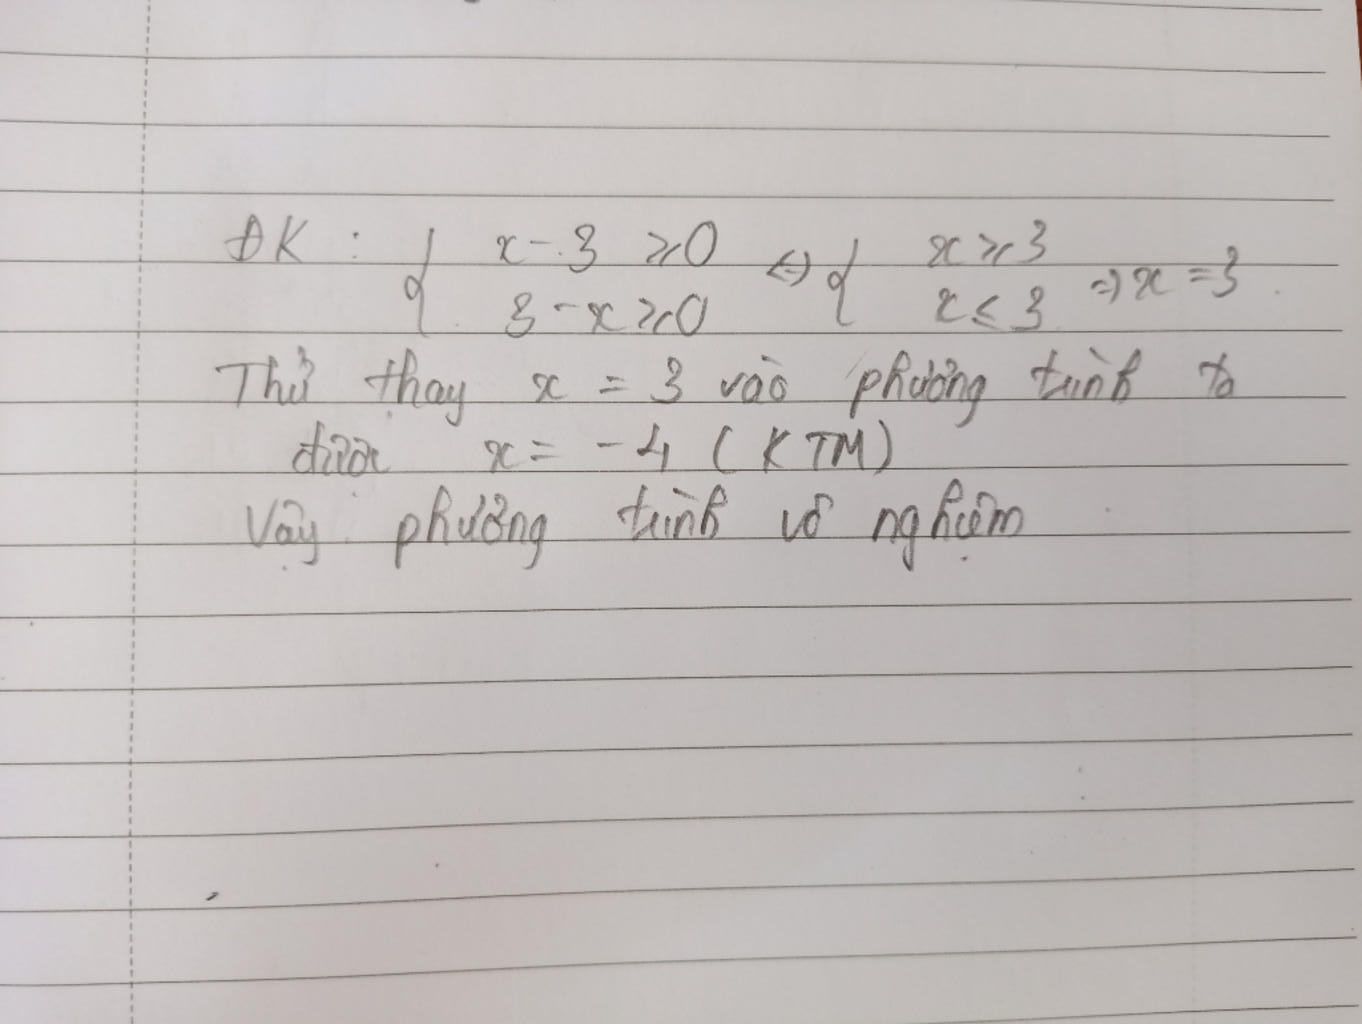 ĐK : { x - 3 ⩾ 0 ⇔ { x ⩾ 3
3 - x ⩾ 0 x ⩽ 3 ⇒ x = 3
Thử thay x = 3 vào phương trình ta
được x = - 4 ( KTM )
Vậy phương trình vô nghiệm